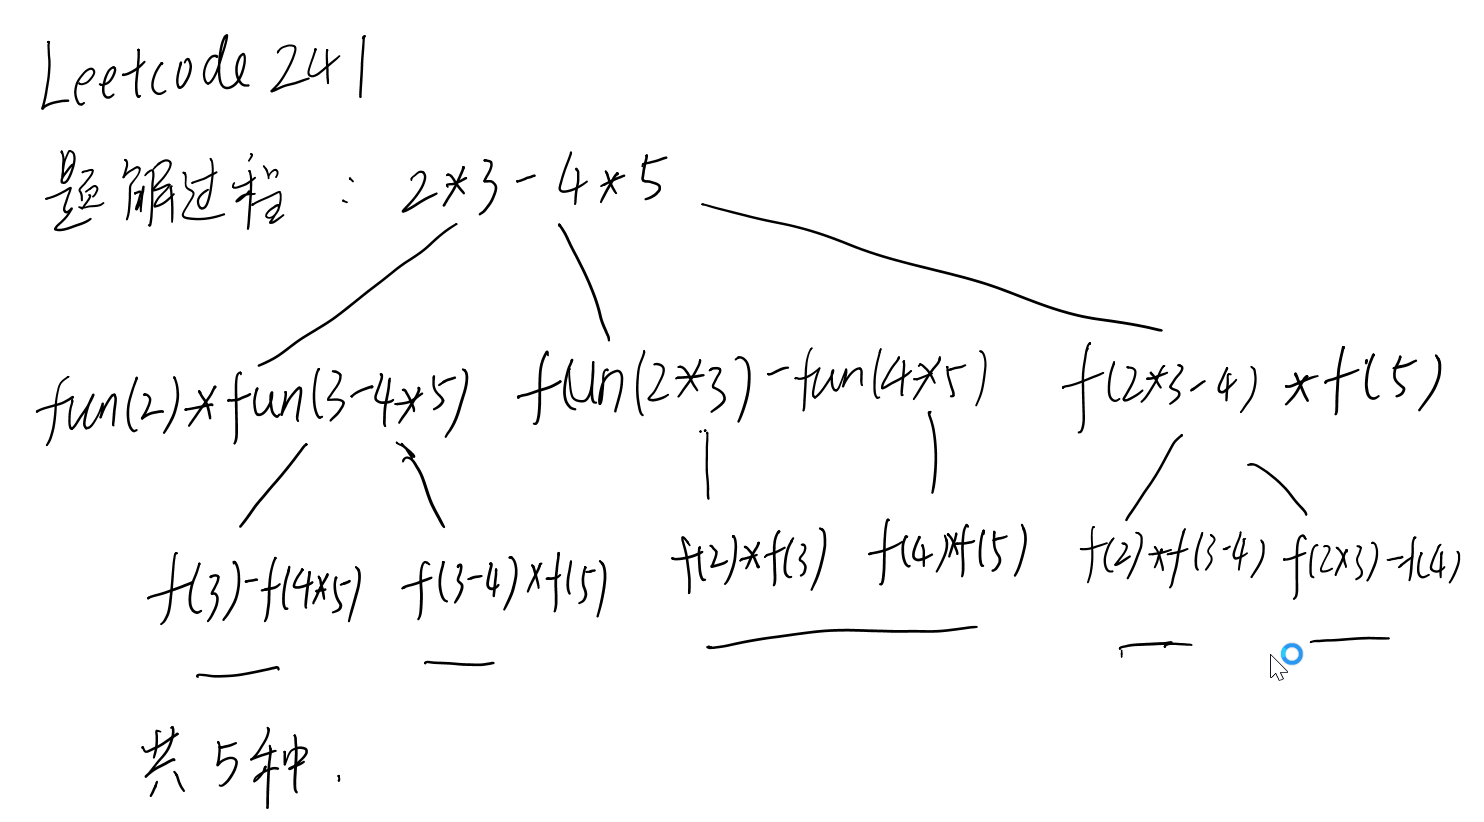 Leetcode 241
题解过程 : 2*3-4*5
fun(2)*fun(3-4*5) fun(2*3)-fun(4*5) f(2*3-4)*f(5)
f(3)-f(4*5) f(3-4)*f(5) f(2)*f(3) f(4)*f(5) f(2)*f(3-4) f(2*3)-f(4)
共5种.